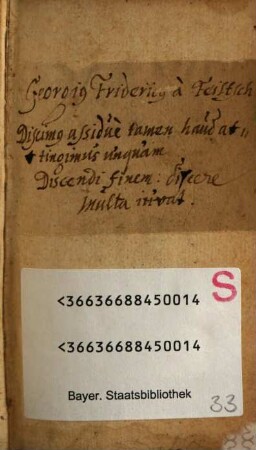 Georgiq Fridericq à Teistsch
Discimq assiduè tamen haud at„
tingimus unquam
Discendi finem: discere
multa iuvat.
S
<36636688450014
<36636688450014
Bayer. Staatsbibliothek
33